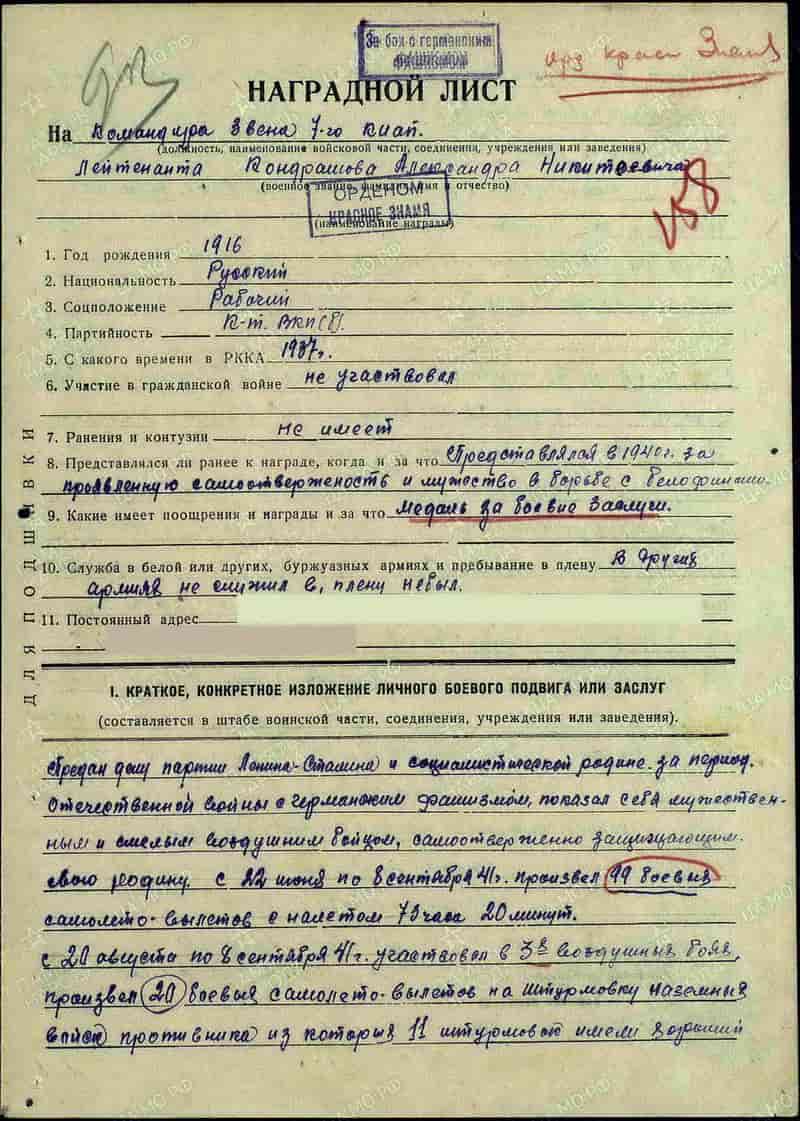 За бои с германским
фашизмом
орд красн Знамя
НАГРАДНОЙ ЛИСТ
На Командира Звена 7-го киап.
(должность, наименование войсковой части, соединения, учреждения или заведения)
Лейтенанта Кондрашова Александра Никитоевича
(военное звание, фамилия, имя и отчество)
ОРДЕНОМ
КРАСНОЕ ЗНАМЯ
(наименование награды)
1. Год рождения 1916
2. Национальность Русский
3. Соцположение Рабочий
4. Партийность К-т. ВКП(б).
5. С какого времени в РККА 1937г.
6. Участие в гражданской войне не участвовал
7. Ранения и контузии не имеет
8. Представлялся ли ранее к награде, когда и за что Представлялся в 1940г. за
проявленную самоотверженость и мужество в борьбе с белофинами.
9. Какие имеет поощрения и награды и за что Медаль за боевые заслуги.
10. Служба в белой или других, буржуазных армиях и пребывание в плену В других
армиях не служил в, плену небыл.
11. Постоянный адрес
ДЛЯ ПОДШИВКИ
I. КРАТКОЕ, КОНКРЕТНОЕ ИЗЛОЖЕНИЕ ЛИЧНОГО БОЕВОГО ПОДВИГА ИЛИ ЗАСЛУГ
(составляется в штабе воинской части, соединения, учреждения или заведения).
Предан делу партии Ленина-Сталина и социалистической родине. за период.
Отечественной войны с германским фашизмом, показал себя мужествен-
ным и смелым воздушним бойцом, самоотверженно защищающим.
свою родину. с 22 июня по 8 сентября 41г. произвел 99 боевых
самолето-вылетов с налетом 73 часа 20 минут.
с 20 августа по 8 сентября 41г. участвовал в 3х воздушных боях,
произвел 20 боевых самолето-вылетов на штурмовку наземных
войск противника из которых 11 штурмовок имели хороший